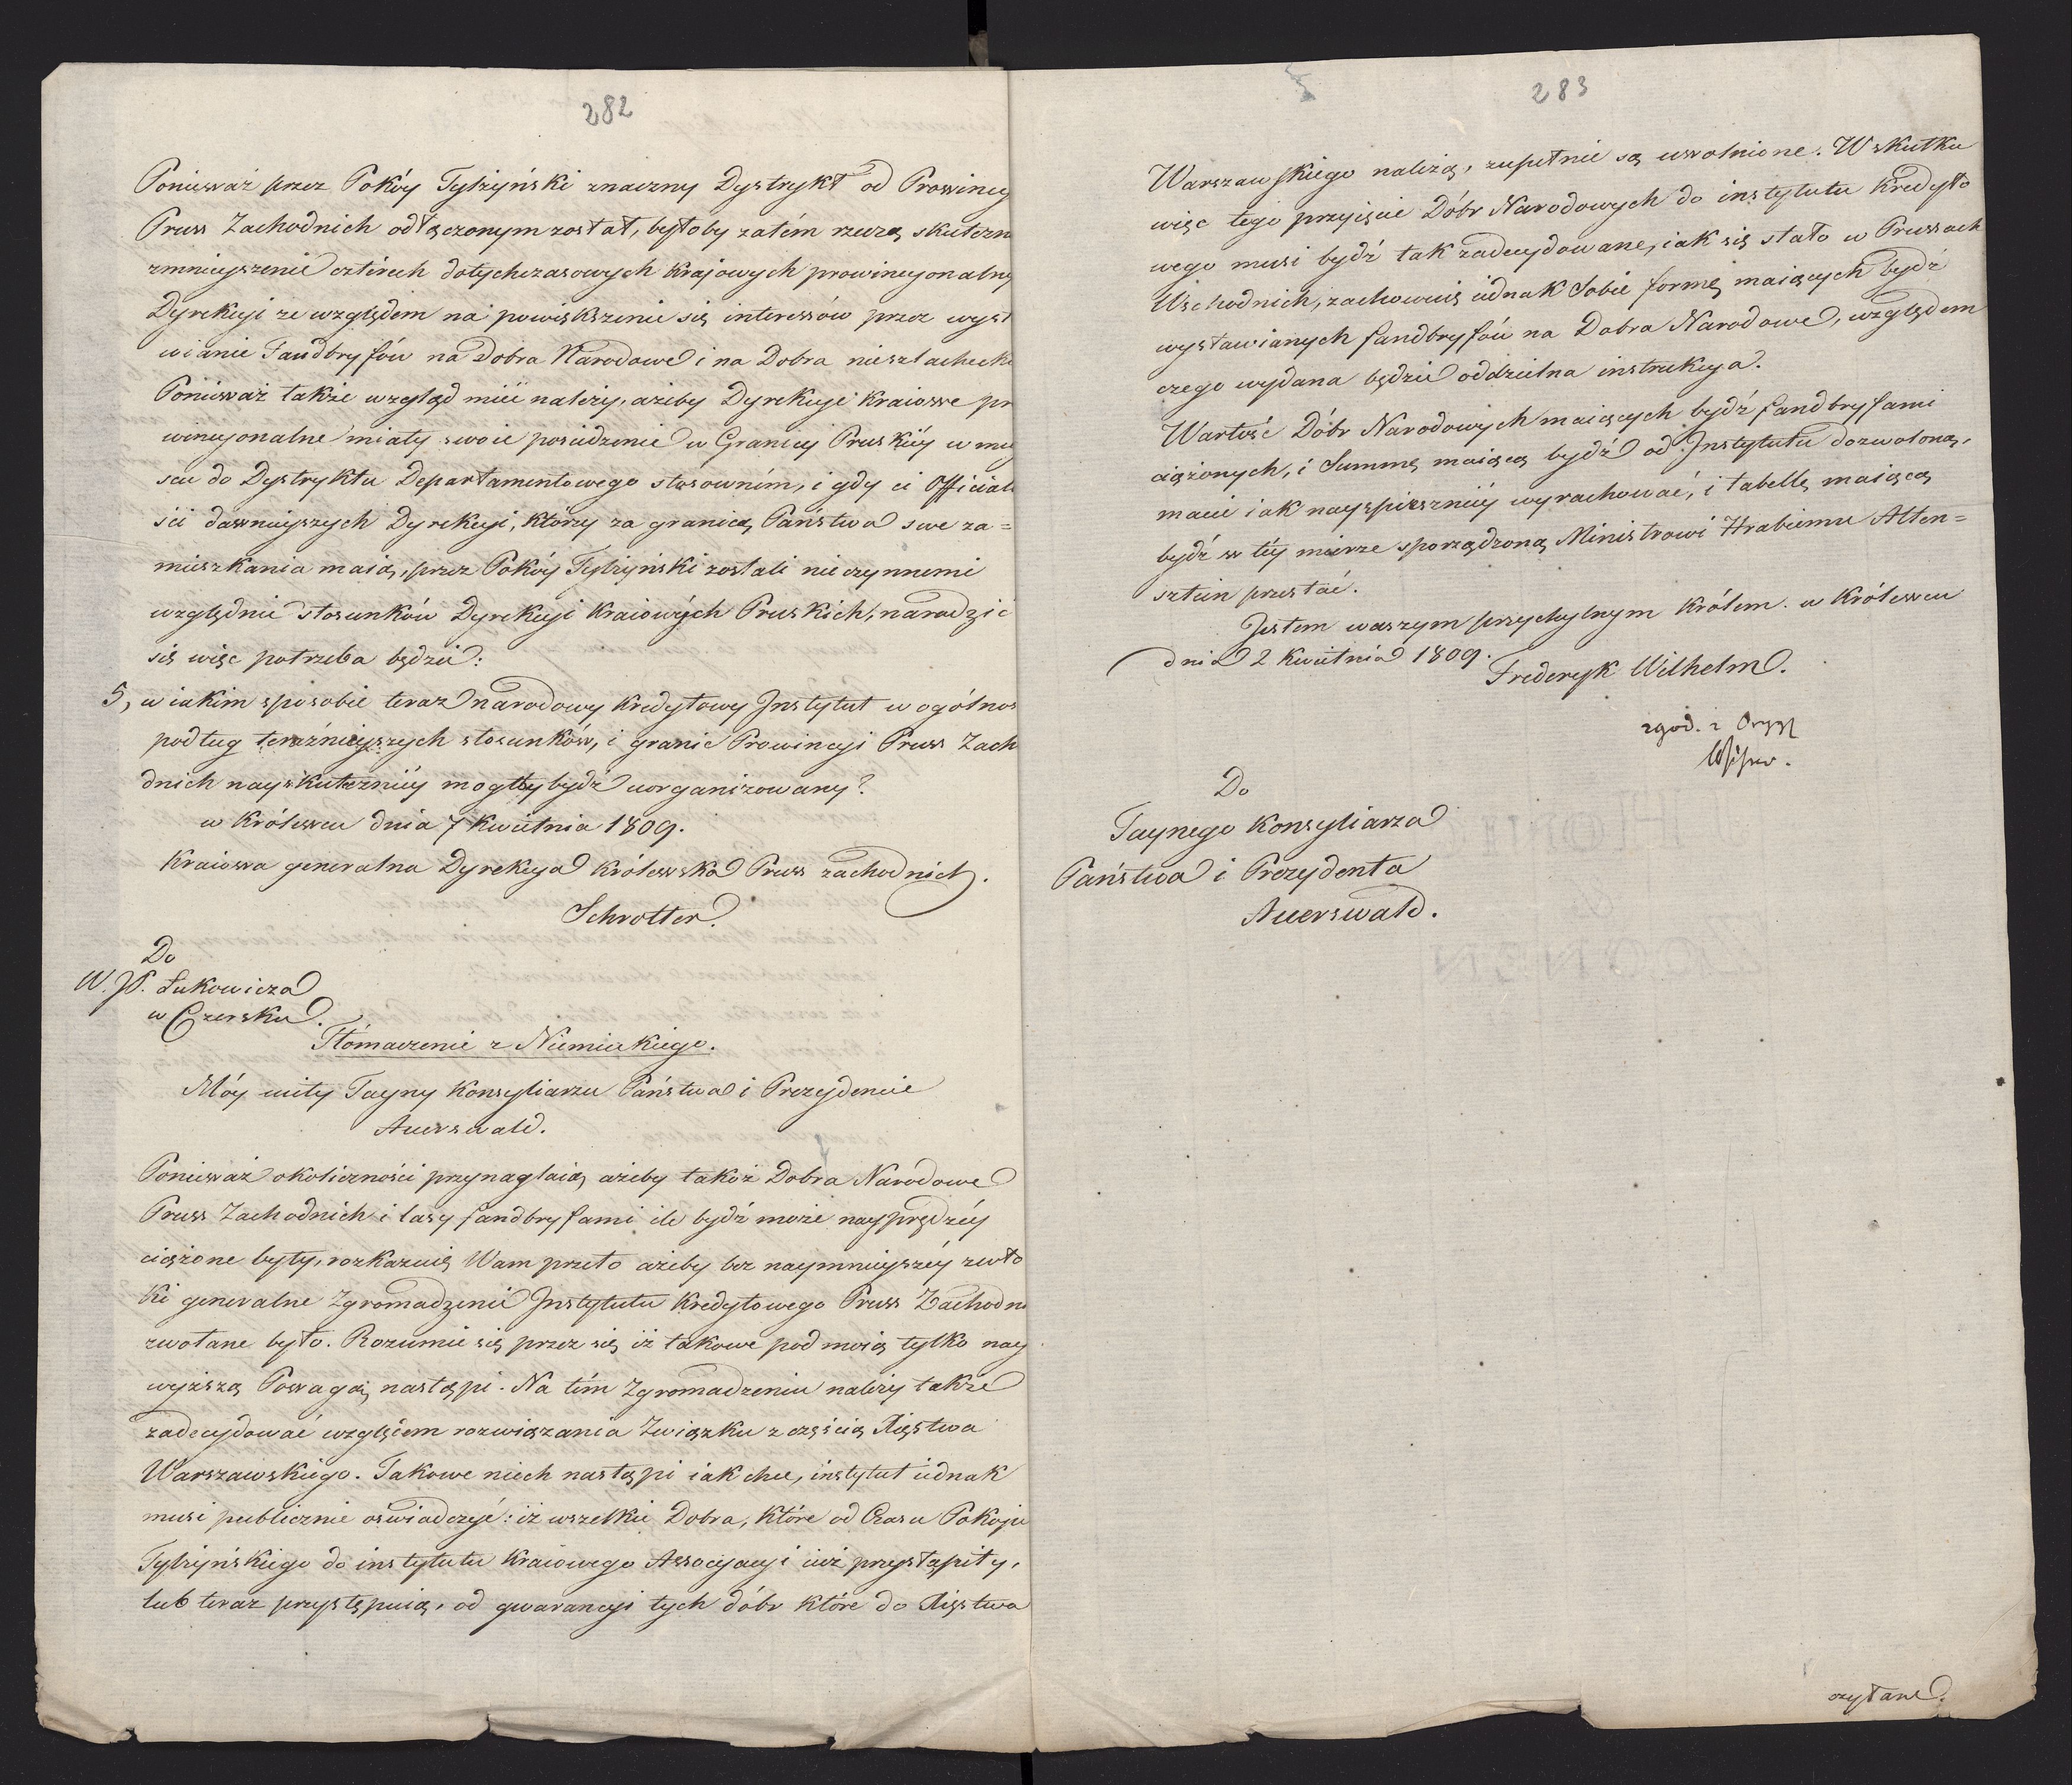 282
Ponieważ przez Pokóy Tylżyński znaczny Dystrykt od Prowincy
Pruss Zachodnich odłączonym został, byłoby zatém rzeczą skuteczn
zmnieyszenie czterech dotychczasowych Krajowych prowincyonalny
Dyrekcyi ze względem na powiększenie się interessów przez wyst
wianie Fandbryfów na Dobra Narodowe i na Dobra nieszlacheck
Ponieważ także wzgląd mieć należy, ażeby Dyrekcye Kraiowe pr
wincyonalne miały swoie posiedzenie w Granicy Pruskiéy w mey
scu do Dystryktu Departamentowego stosowném, i gdy ci Official
iści dawnieyszych Dyrekcyi, którzy za granicą Państwa swe za=
mieszkania maią, przez Pokóy Tylżyński zostali nieczynnemi
względnie stosunków Dyrekcyi Kraiowych Pruskich, naradzić
się więc potrzeba będzie:
5, w iakim sposobie teraz narodowy Kredytowy Instytut w ogólnoś
podług teraźnieyszych stosunków, i granic Prowincyi Pruss Zach
dnich nayskuteczniéy mogłby bydź uorganizowany?
w Królewcu dnia 7 Kwietnia 1809.
Kraiowa generalna Dyrekcya Królewska Pruss zachodnich.
Schrotter.
Do
W. JP. Łukowicza
w Czersku.
Tłómaczenie z Niemieckiego.
Móy miły Tayny Konsyliarzu Państwa i Prezydencie
Auerswald.
Ponieważ okoliczności przynaglaią, ażeby takoż Dobra Narodowe
Pruss Zachodnich i lasy fandbryfami ile bydź może nayprędzéy
ciążone były, rozkazuię Wam przeto ażeby bez naymnieyszéy zwło
ki generalne Zgromadzenie Instytutu Kredytowego Pruss Zachodni
zwołane było. Rozumie się przez się iż takowe pod moią tylko nay
wyższą Powagą nastąpi. Na tém Zgromadzeniu należy także
zadecydować względem rozwiązania Związku z częścią Xięstwa
Warszawskiego. Takowe niech nastąpi iak chce, instytut iednak
musi publicznie oświadczyć: iż wszelkie Dobra, które od Czasu Pokoju
Tylżyńskiego do instytutu Kraiowego Associacyi iuż przystąpiły,
lub teraz przystępuią, od gwarancyi tych dóbr które do Xięstwa
283
Warszawskiego należą, zupełnie są uwolnione. W skutku
więc tego przyięcie Dóbr Narodowych do instytutu Kredyto
wego musi bydź tak zadecydowane, iak się stało w Prussach
Wschodnich, zachowuię iednak Sobie formę maiących bydź
wystawianych fandbryfów na Dobra Narodowe, względem
czego wydana będzie oddzielna instrukcya.
Wartość Dóbr Narodowych maiących bydź fandbryfami
ciążonych, i Summę maiącą bydź od Instytutu dozwoloną,
macie iak nayspieszniéy wyrachować, i tabellę maiącą
bydź w téy mierze sporządzoną Ministrowi Hrabiemu Alten=
sztein przesłać.
Jestem waszym przychylnym Królem. w Królewcu
dnia 2 Kwietnia 1809.
Frederyk Wilhelm.
zgod. z Orygl
Do
Taynego Konsyliarza
Państwa i Prezydenta
Auerswald.
czytane.